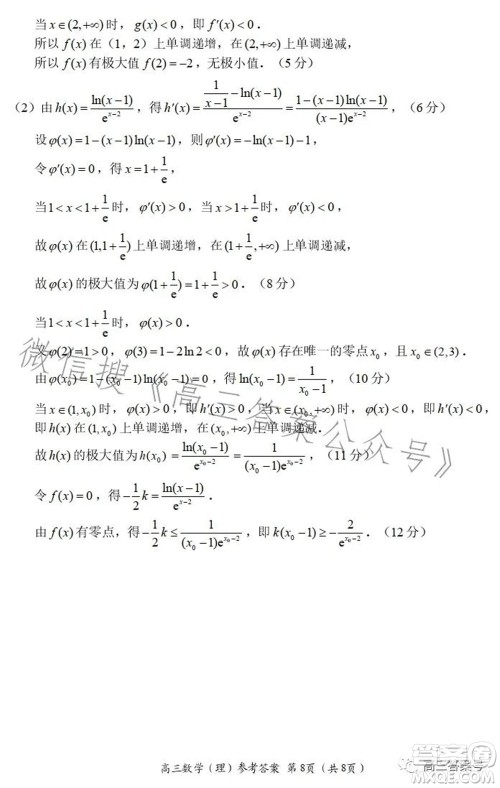 当x∈(2,+∞)时，g(x)<0，即f′(x)<0．
所以f(x)在（1，2）上单调递增，在(2,+∞)上单调递减，
所以f(x)有极大值f(2)=−2，无极小值．（5分）
（2）由h(x)=ln(x−1)/e^(x−2)，得h′(x)=(1/(x−1)−ln(x−1))/e^(x−2)=(1−(x−1)ln(x−1))/((x−1)e^(x−2))，（6分）
设φ(x)=1−(x−1)ln(x−1)，则φ′(x)=−ln(x−1)−1，
令φ′(x)=0，得x=1+1/e，
当1<x<1+1/e时，φ′(x)>0，当x>1+1/e时，φ′(x)<0，
故φ(x)在(1,1+1/e)上单调递增，在(1+1/e,+∞)上单调递减，
故φ(x)的极大值为φ(1+1/e)=1+1/e>0．（8分）
当1<x<1+1/e时，φ(x)>0．
又φ(2)=1>0，φ(3)=1−2ln2<0，故φ(x)存在唯一的零点x₀，且x₀∈(2,3)．
由φ(x₀)=1−(x₀−1)ln(x₀−1)=0，得ln(x₀−1)=1/(x₀−1)，（10分）
当x∈(1,x₀)时，φ(x)>0，即h′(x)>0，当x∈(x₀,+∞)时，φ(x)<0，即h′(x)<0，
即h(x)在(1,x₀)上单调递增，在(x₀,+∞)上单调递减．
故h(x)的极大值为h(x₀)=ln(x₀−1)/e^(x₀−2)=1/((x₀−1)e^(x₀−2))，（11分）
令f(x)=0，得−1/2k=ln(x−1)/e^(x−2)．
由f(x)有零点，得−1/2k≤1/((x₀−1)e^(x₀−2))，即k(x₀−1)≥−2/e^(x₀−2)．（12分）
微信搜《高三答案公众号》
高三数学（理）参考答案 第8页（共8页）
高三答案号